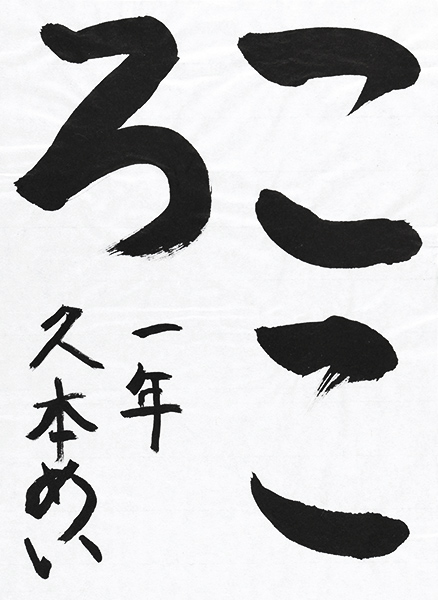 ここ
ろ
一年
久本めい